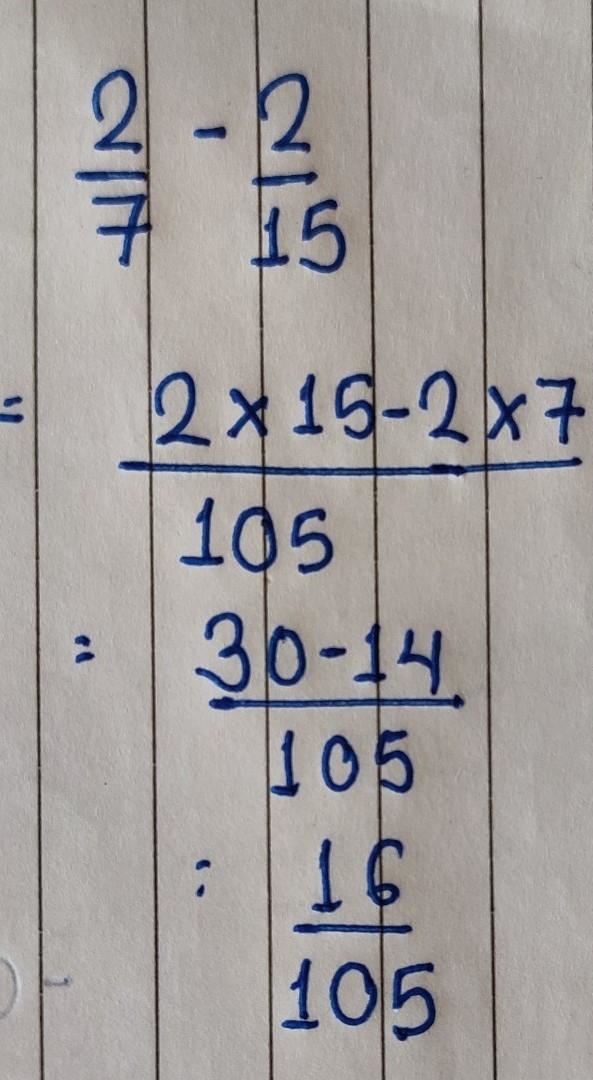 2 - 2
7 15
= 2 x 15 - 2 x 7
105
= 30 - 14
105
= 16
105